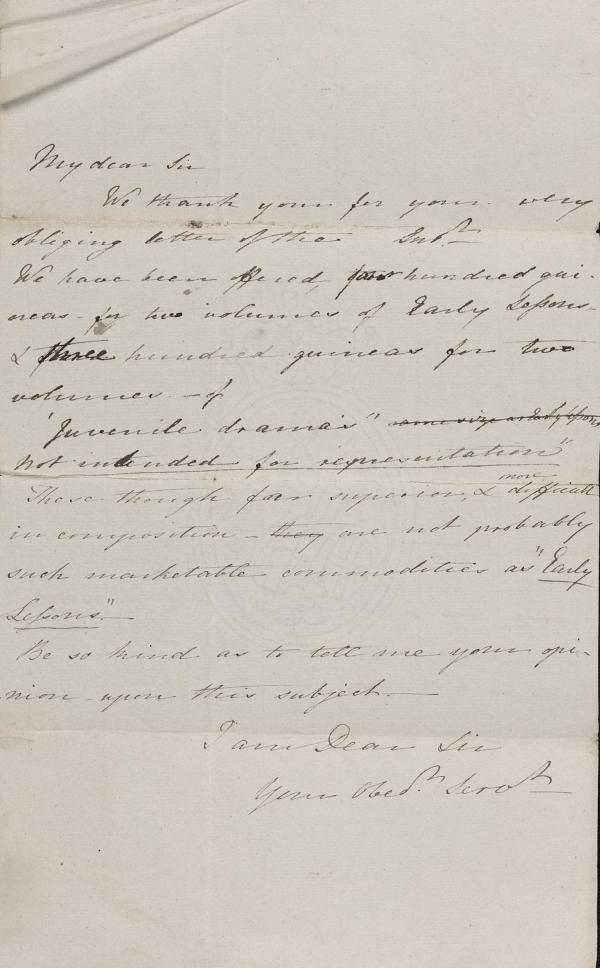 My dear Sir
We thank your for your very
obliging letter of the Inst
We have been offered, four hundred gui-
neas for two volumes of Early Lessons
& three hundred guineas for two
volumes - of
"Juvenile drama's" same size as Early Lessons
not intended for representation"
These though far superior, & more difficult
in composition - they are not probably
such marketable commodities as "Early
Lessons" -
Be so kind as to tell me your opi-
nion upon this subject -
I am Dear Sir
Your Obedt. Servt